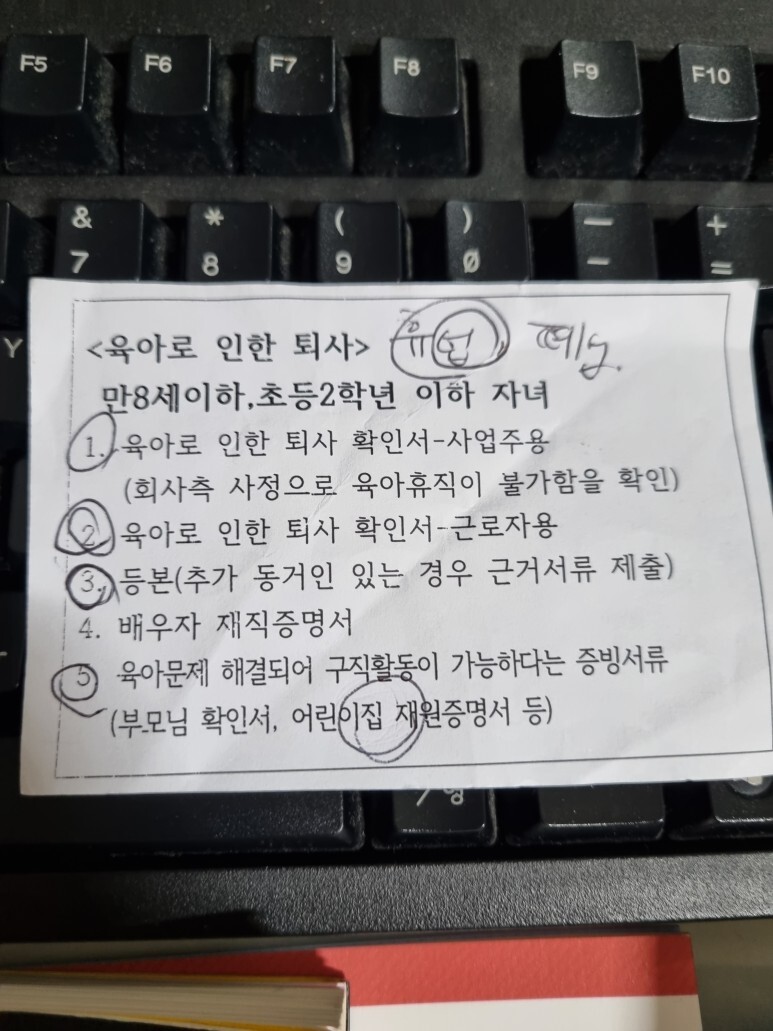 F5 F6 F7 F8 F9 F10
& * ( ) — +
7 8 9 0 - =
Y
<육아로 인한 퇴사>
만8세이하,초등2학년 이하 자녀
1. 육아로 인한 퇴사 확인서-사업주용
(회사측 사정으로 육아휴직이 불가함을 확인)
2. 육아로 인한 퇴사 확인서-근로자용
3. 등본(추가 동거인 있는 경우 근거서류 제출)
4. 배우자 재직증명서
5 육아문제 해결되어 구직활동이 가능하다는 증빙서류
(부모님 확인서, 어린이집 재원증명서 등)